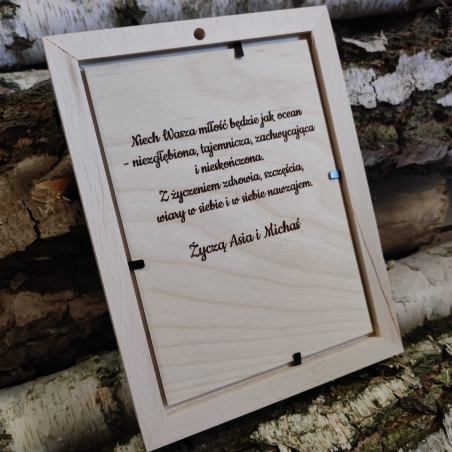 Niech Wasza miłość będzie jak ocean
- niezgłębiona, tajemnicza, zachwycająca
i nieskończona.
Z życzeniem zdrowia, szczęścia,
wiary w siebie i w siebie nawzajem.
Życzą Asia i Michaś